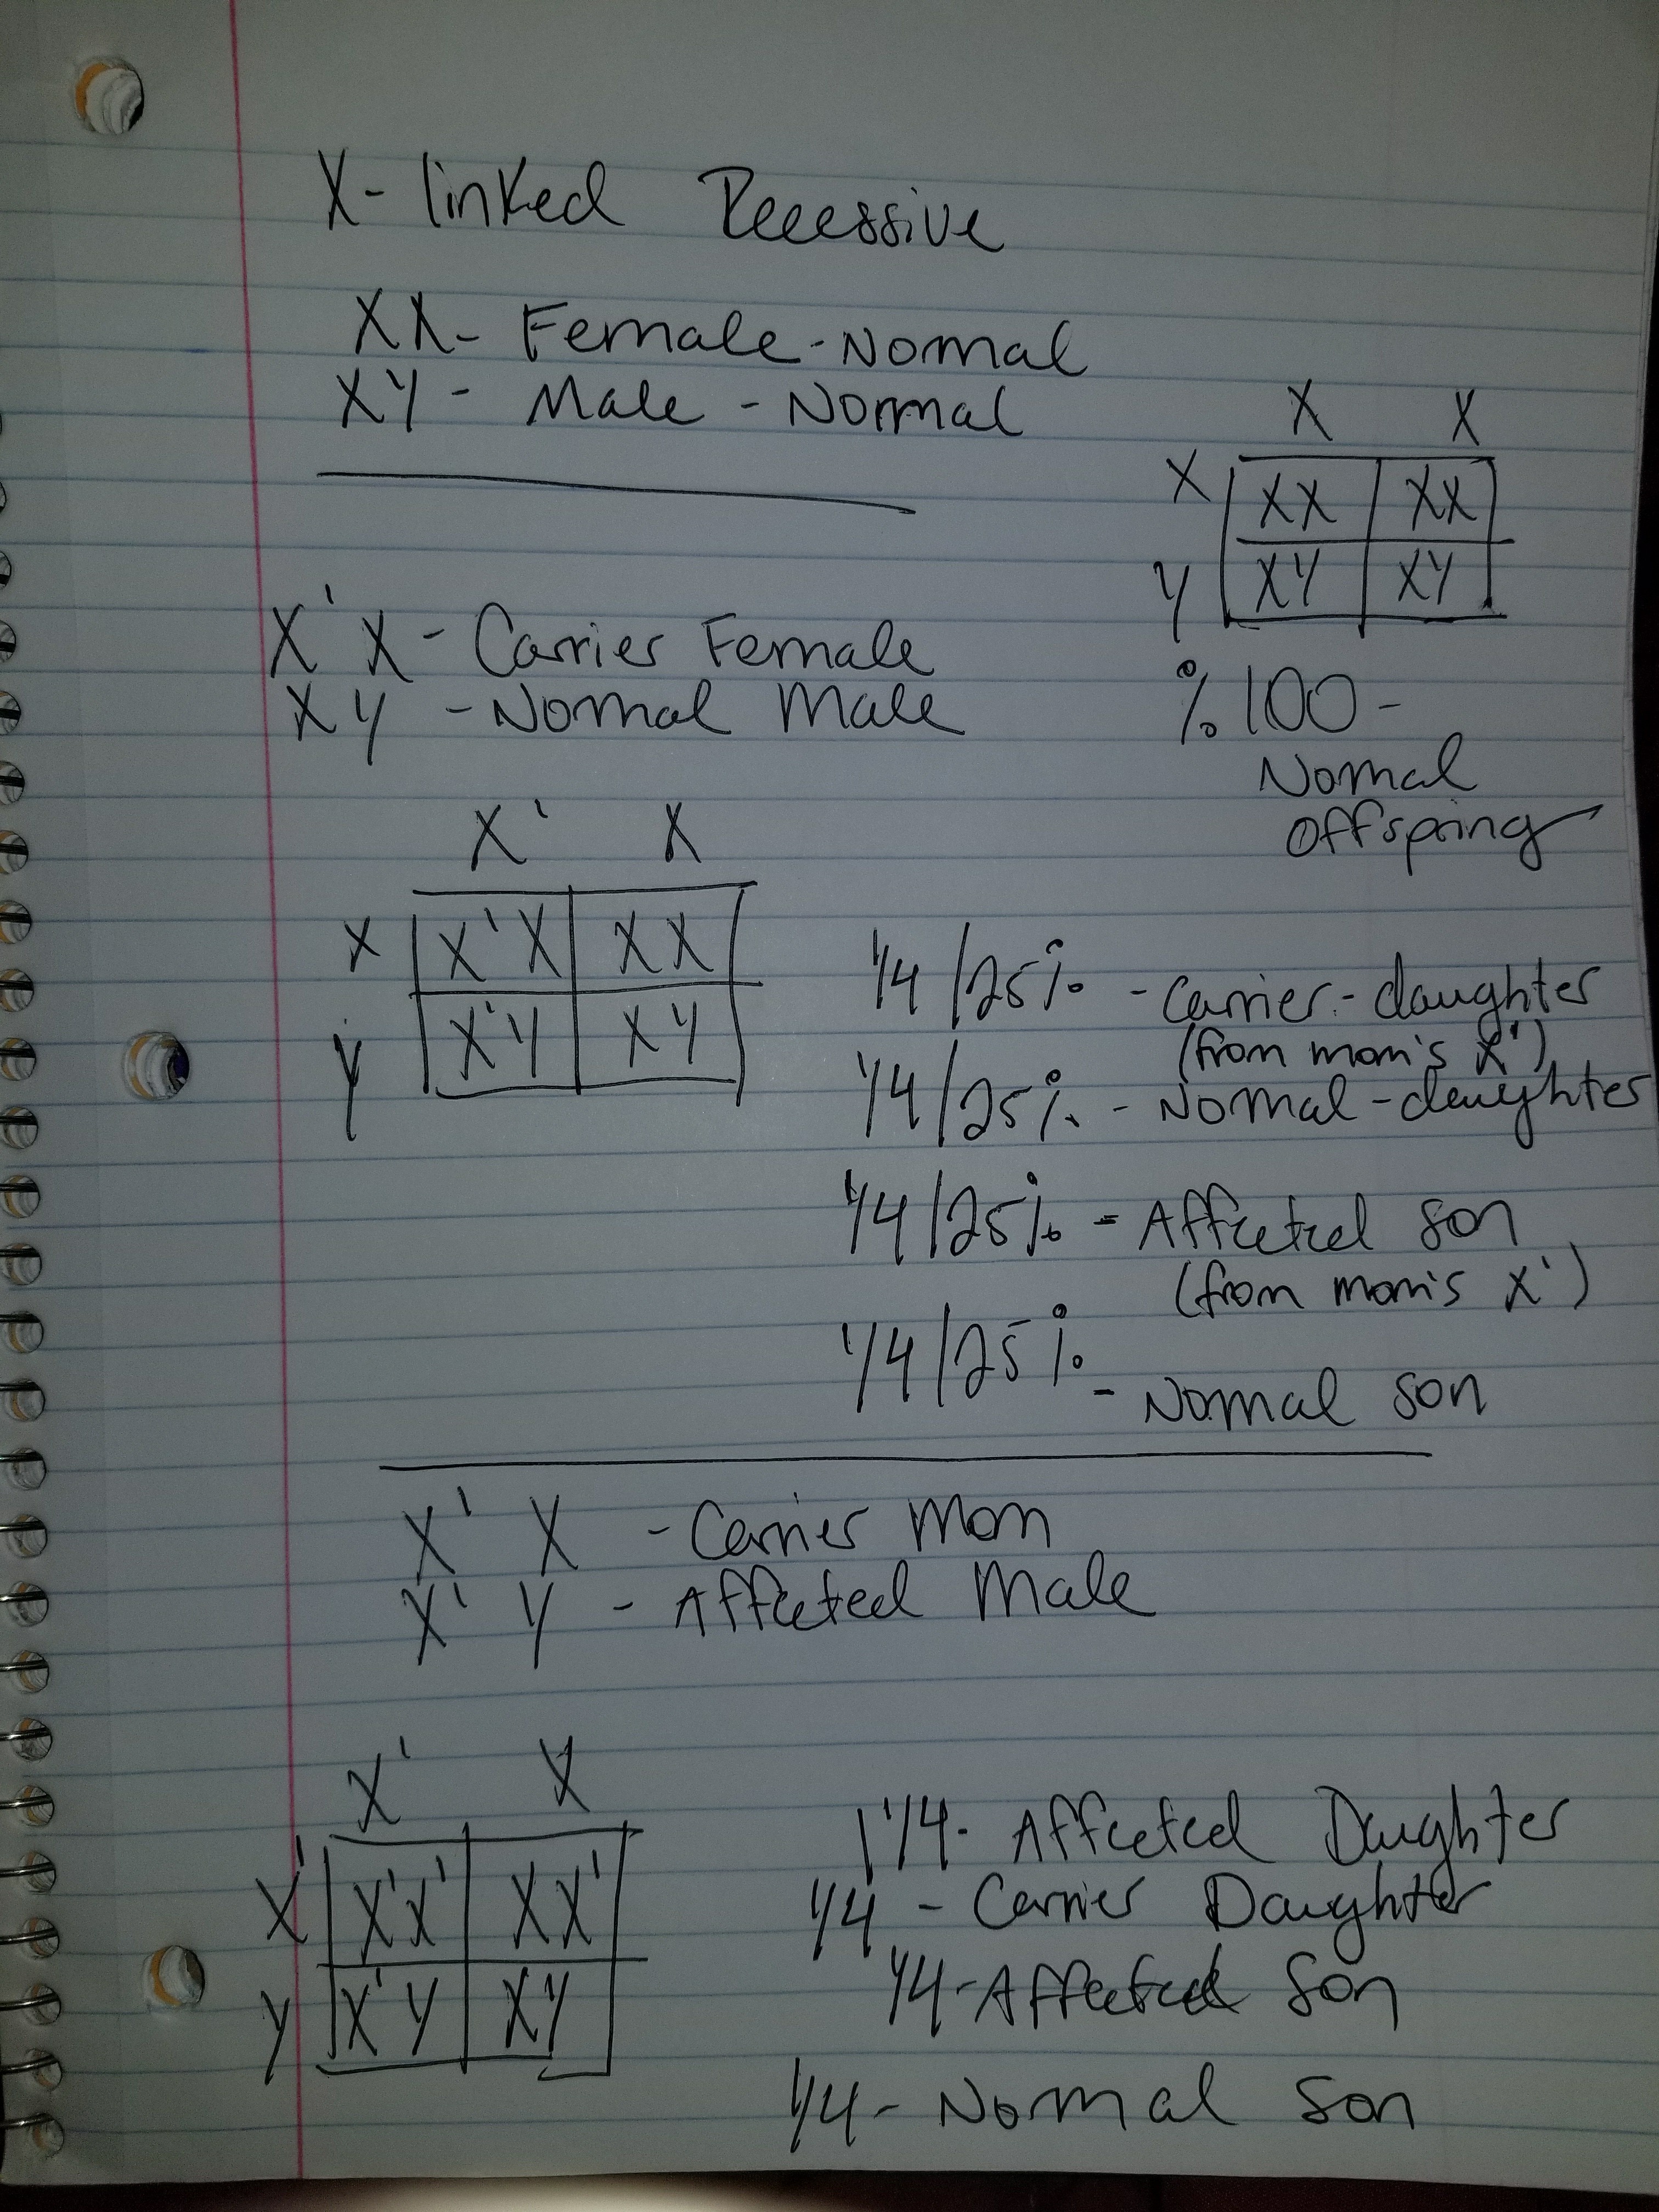 X- linked Recessive
XX- Female-Normal
XY - Male - Normal
X X
X XX XX
Y XY XY
% 100 -
Normal
Offspring
X' X - Carrier Female
XY - Normal Male
X' X
X X'X XX
Y X'Y XY
1/4 / 25% - Carrier - daughter
(from mom's X')
1/4 / 25% - Normal - daughter
1/4 / 25% - Affected son
(from mom's X')
1/4 / 25% - Normal son
X' X - Carrier Mom
X' Y - Affected Male
X' X
X' X'X' XX'
Y X'Y XY
1/4 - Affected Daughter
1/4 - Carrier Daughter
1/4 - Affected Son
1/4 - Normal Son